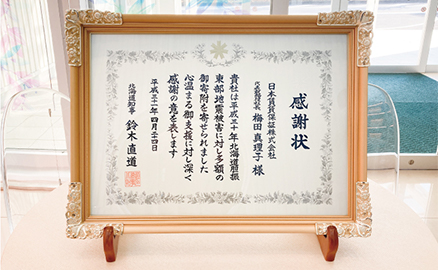 感謝状
日本賃貸保証株式会社
代表取締役社長 梅田真理子様
貴社は平成三十年北海道胆振
東部地震被害に対し多額の
御寄附を寄せられました
心温まる御支援に対し深く
感謝の意を表します
平成三十一年四月二十四日
北海道知事 鈴木直道